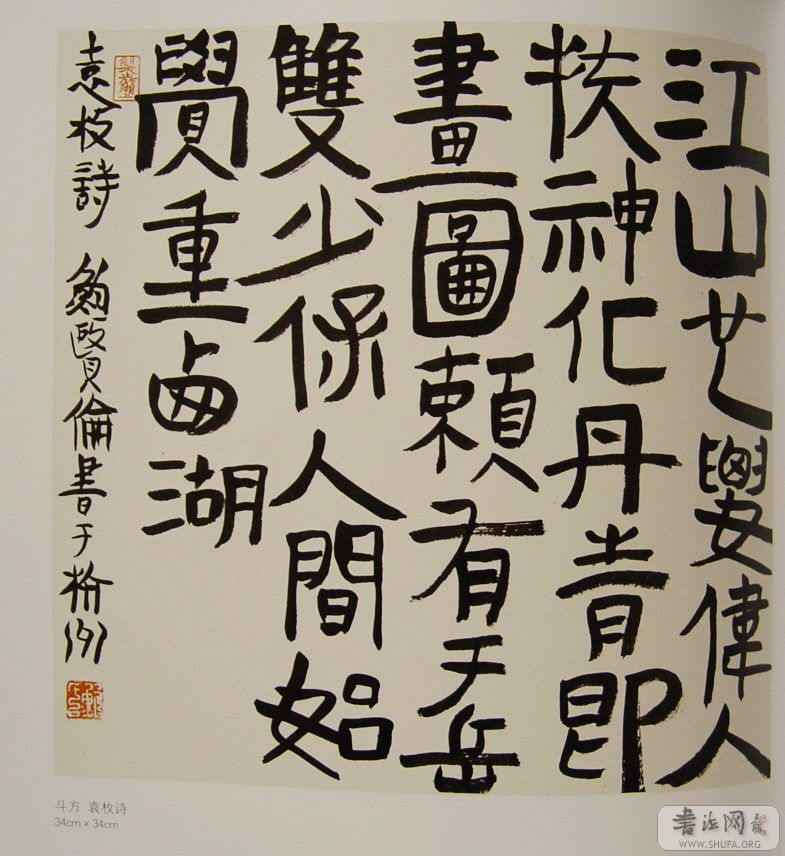 江山也要偉人
扶神化丹青即
畫圖賴有于岳
雙少保人間始
覺重西湖
袁枚詩 鮑賢倫書于杭州
斗方 袁枚诗
34cm × 34cm
书法网
WWW.SHUFA.ORG